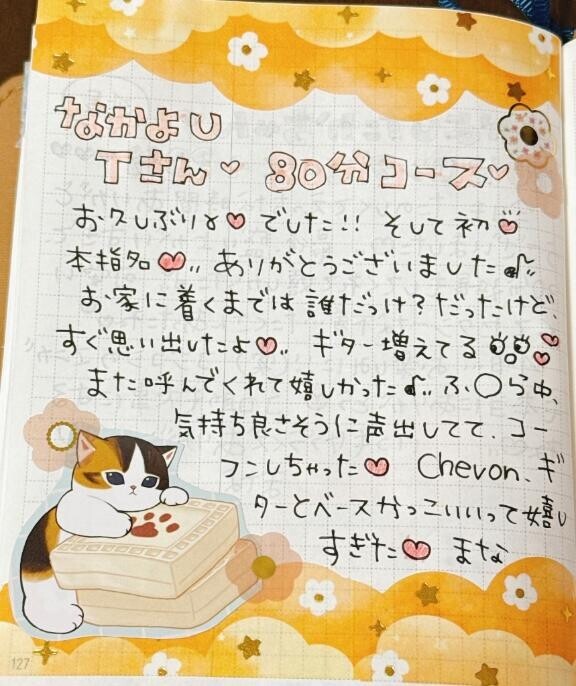 なかよし
Tさん♡ 80分コース♡
お久しぶりぶり♡でした!! そして初♡
本指名♡〃ありがとうございました♪〃
お家に着くまでは誰だっけ?だったけど、
すぐ思い出したよ♡〃 ギター増えてる
また呼んでくれて嬉しかった♪〃ふ○ら中、
気持ち良さそうに声出してて、コー
フンしちゃった♡ Chevon、ギ
ターとベースかっこいいって嬉し
すぎた♡ まな
127